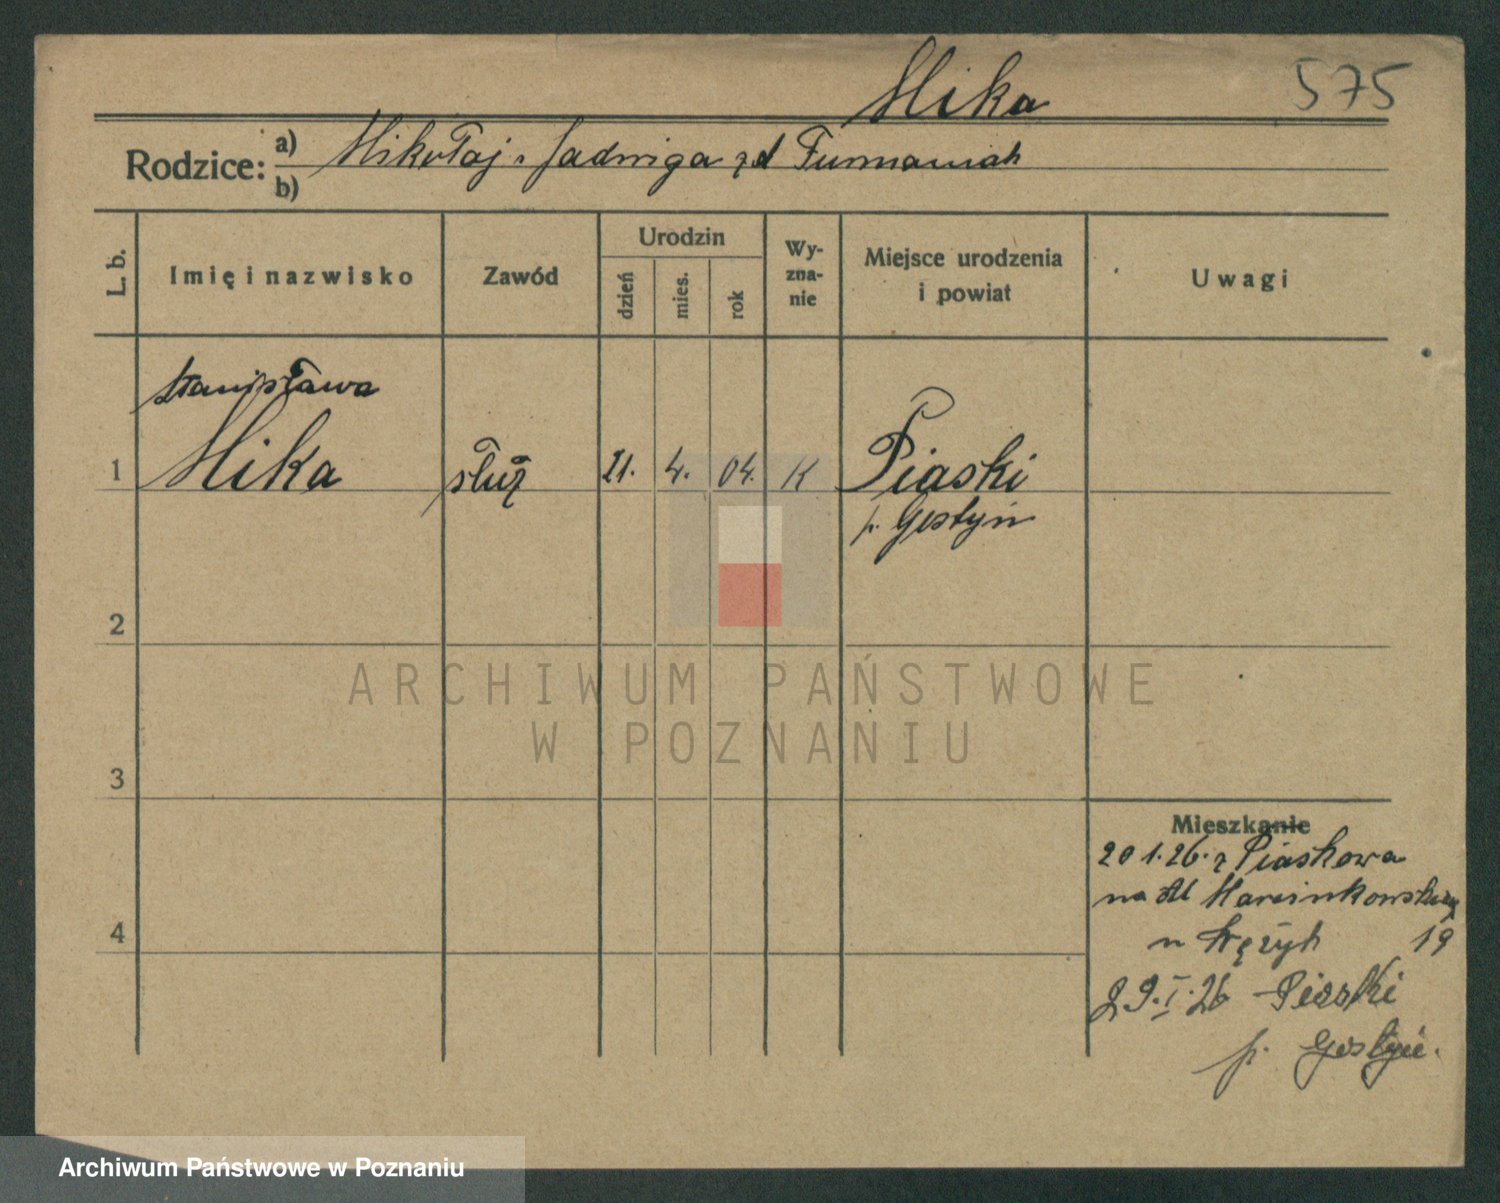 Mika
575
Rodzice: a) Mikołaj i Jadwiga zd Furmaniak
b)
L. b. Imię i nazwisko Zawód Urodzin dzień mies. rok Wy-zna-nie Miejsce urodzenia i powiat Uwagi
Stanisława
1 Mika służ 21. 4. 04. K Piaski
p. Gostyń
2
ARCHIWUM PAŃSTWOWE
W POZNANIU
3
Mieszkanie
20 1. 26. z Piaskowa
na Al Marcinkowskieg
19
4
29. I. 26 Piaski
p. Gostyń.
Archiwum Państwowe w Poznaniu